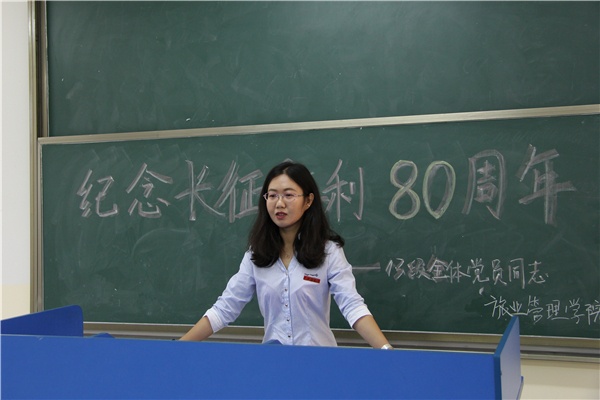 纪念长征 利80周年
——13级全体党员同志
旅业管理学院